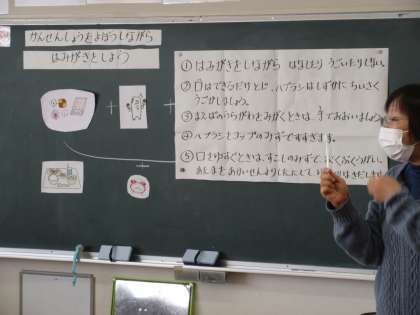 かんせんしょうをよぼうしながら
はみがきをしよう
① はみがきをしながら はなしたり うごいたりしない。
② 口はできるだけとじ、ハブラシはしずかに ちいさく
うごかしましょう。
③ まえばのうらがわをみがくときは、手でおおいましょう。
④ ハブラシとコップのみずですすぎます。
⑤ 口をゆすぐときは、すこしのみずで ぶくぶくうがい。